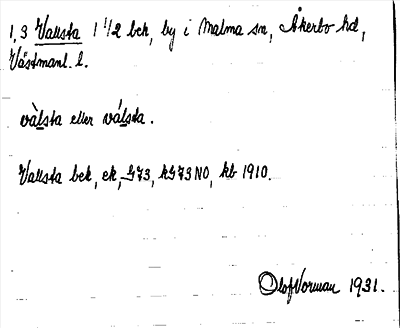 1,3 Vallsta 1 1/2 bek, by i Malma sn, Åkerbo hd,
Västmanl. l.
vàlsta eller válsta.
Vallsta bek, ek, G73, kG73NO, kb 1910.
Olof Norman 1931.